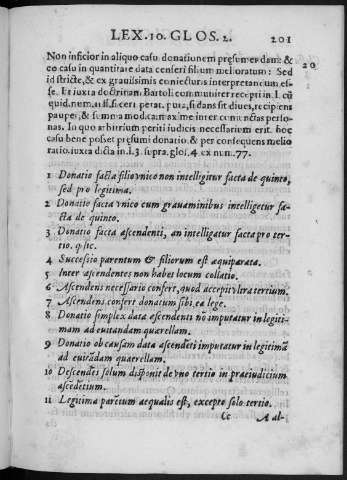 LEX. 10. GLOS. 2. 201
Non inficior in aliquo casu donationem presumendam: &
eo casu in quantitate data censeri filium melioratum: Sed
id stricte, & ex grauissimis coniecturis interpretandum es-
se. Et iuxta doctrinam Bartoli communiter recepti in l. cũ
quid. num. 11. ff. si cert. petat. puta, si dans sit diues, recipiens
pauper, & summa modica: maxime inter coniunctas perso-
nas. In quo arbitrium periti iudicis necessarium erit. hoc
casu bene posset presumi donatio, & per consequens melio
ratio. iuxta dicta in l. 3. supra. glos. 4. ex num. 77.
20
1 Donatio facta filio vnico non intelligitur facta de quinto,
sed pro legitima.
2 Donatio facta vnico cum grauaminibus intelligetur fa-
cta de quinto.
3 Donatio facta ascendenti, an intelligatur facta pro ter-
tio.
4 Successio parentum & filiorum est æquiparata.
5 Inter ascendentes non habet locum collatio.
6 Ascendens necessario confert, quod accepit vltra tertium.
7 Ascendens confert donatum sibi ea lege.
8 Donatio simplex data ascendenti nõ imputatur in legiti-
mam ad euitandam quærellam.
9 Donatio ob causam data ascendẽti imputatur in legitimã
ad euitãdam quaerellam.
10 Descendẽs solum disponit de vno tertio in praeiudicium
ascẽdẽtium.
11 Legitima parẽtum aequalis est, excepto solo tertio.
Cc A al-